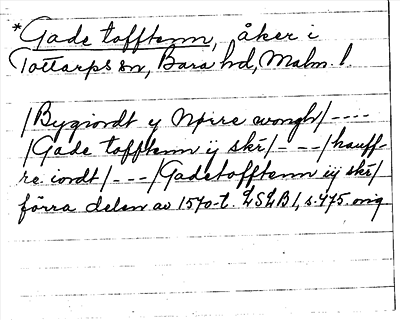 *Gade tofftenn, åker i
Tottarps sn, Bara hd, Malm. l.
/Bygiordt y Nørre wongh/----
/Gade tofftenn ij skr/---/hauff-
re iordt/---/Gadetofftenn iij skr/
förra delen av 1570-t. LSLB1, s. 475 orig